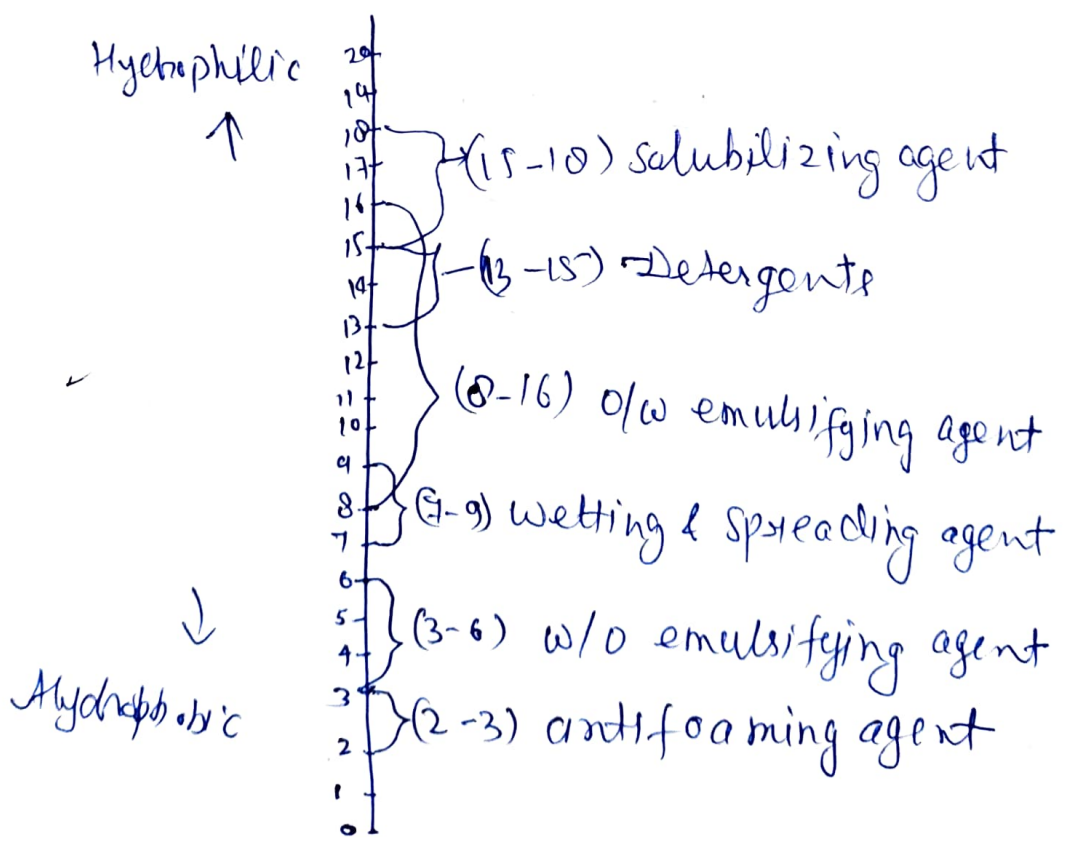 Hydrophilic
20
19
18
17
16
15
14
13
12
11
10
9
8
7
6
5
4
3
2
1
0
(15-18) Solubilizing agent
(13-15) Detergents
(8-16) o/w emulsifying agent
(7-9) wetting & spreading agent
(3-6) w/o emulsifying agent
(2-3) antifoaming agent
Hydrophobic